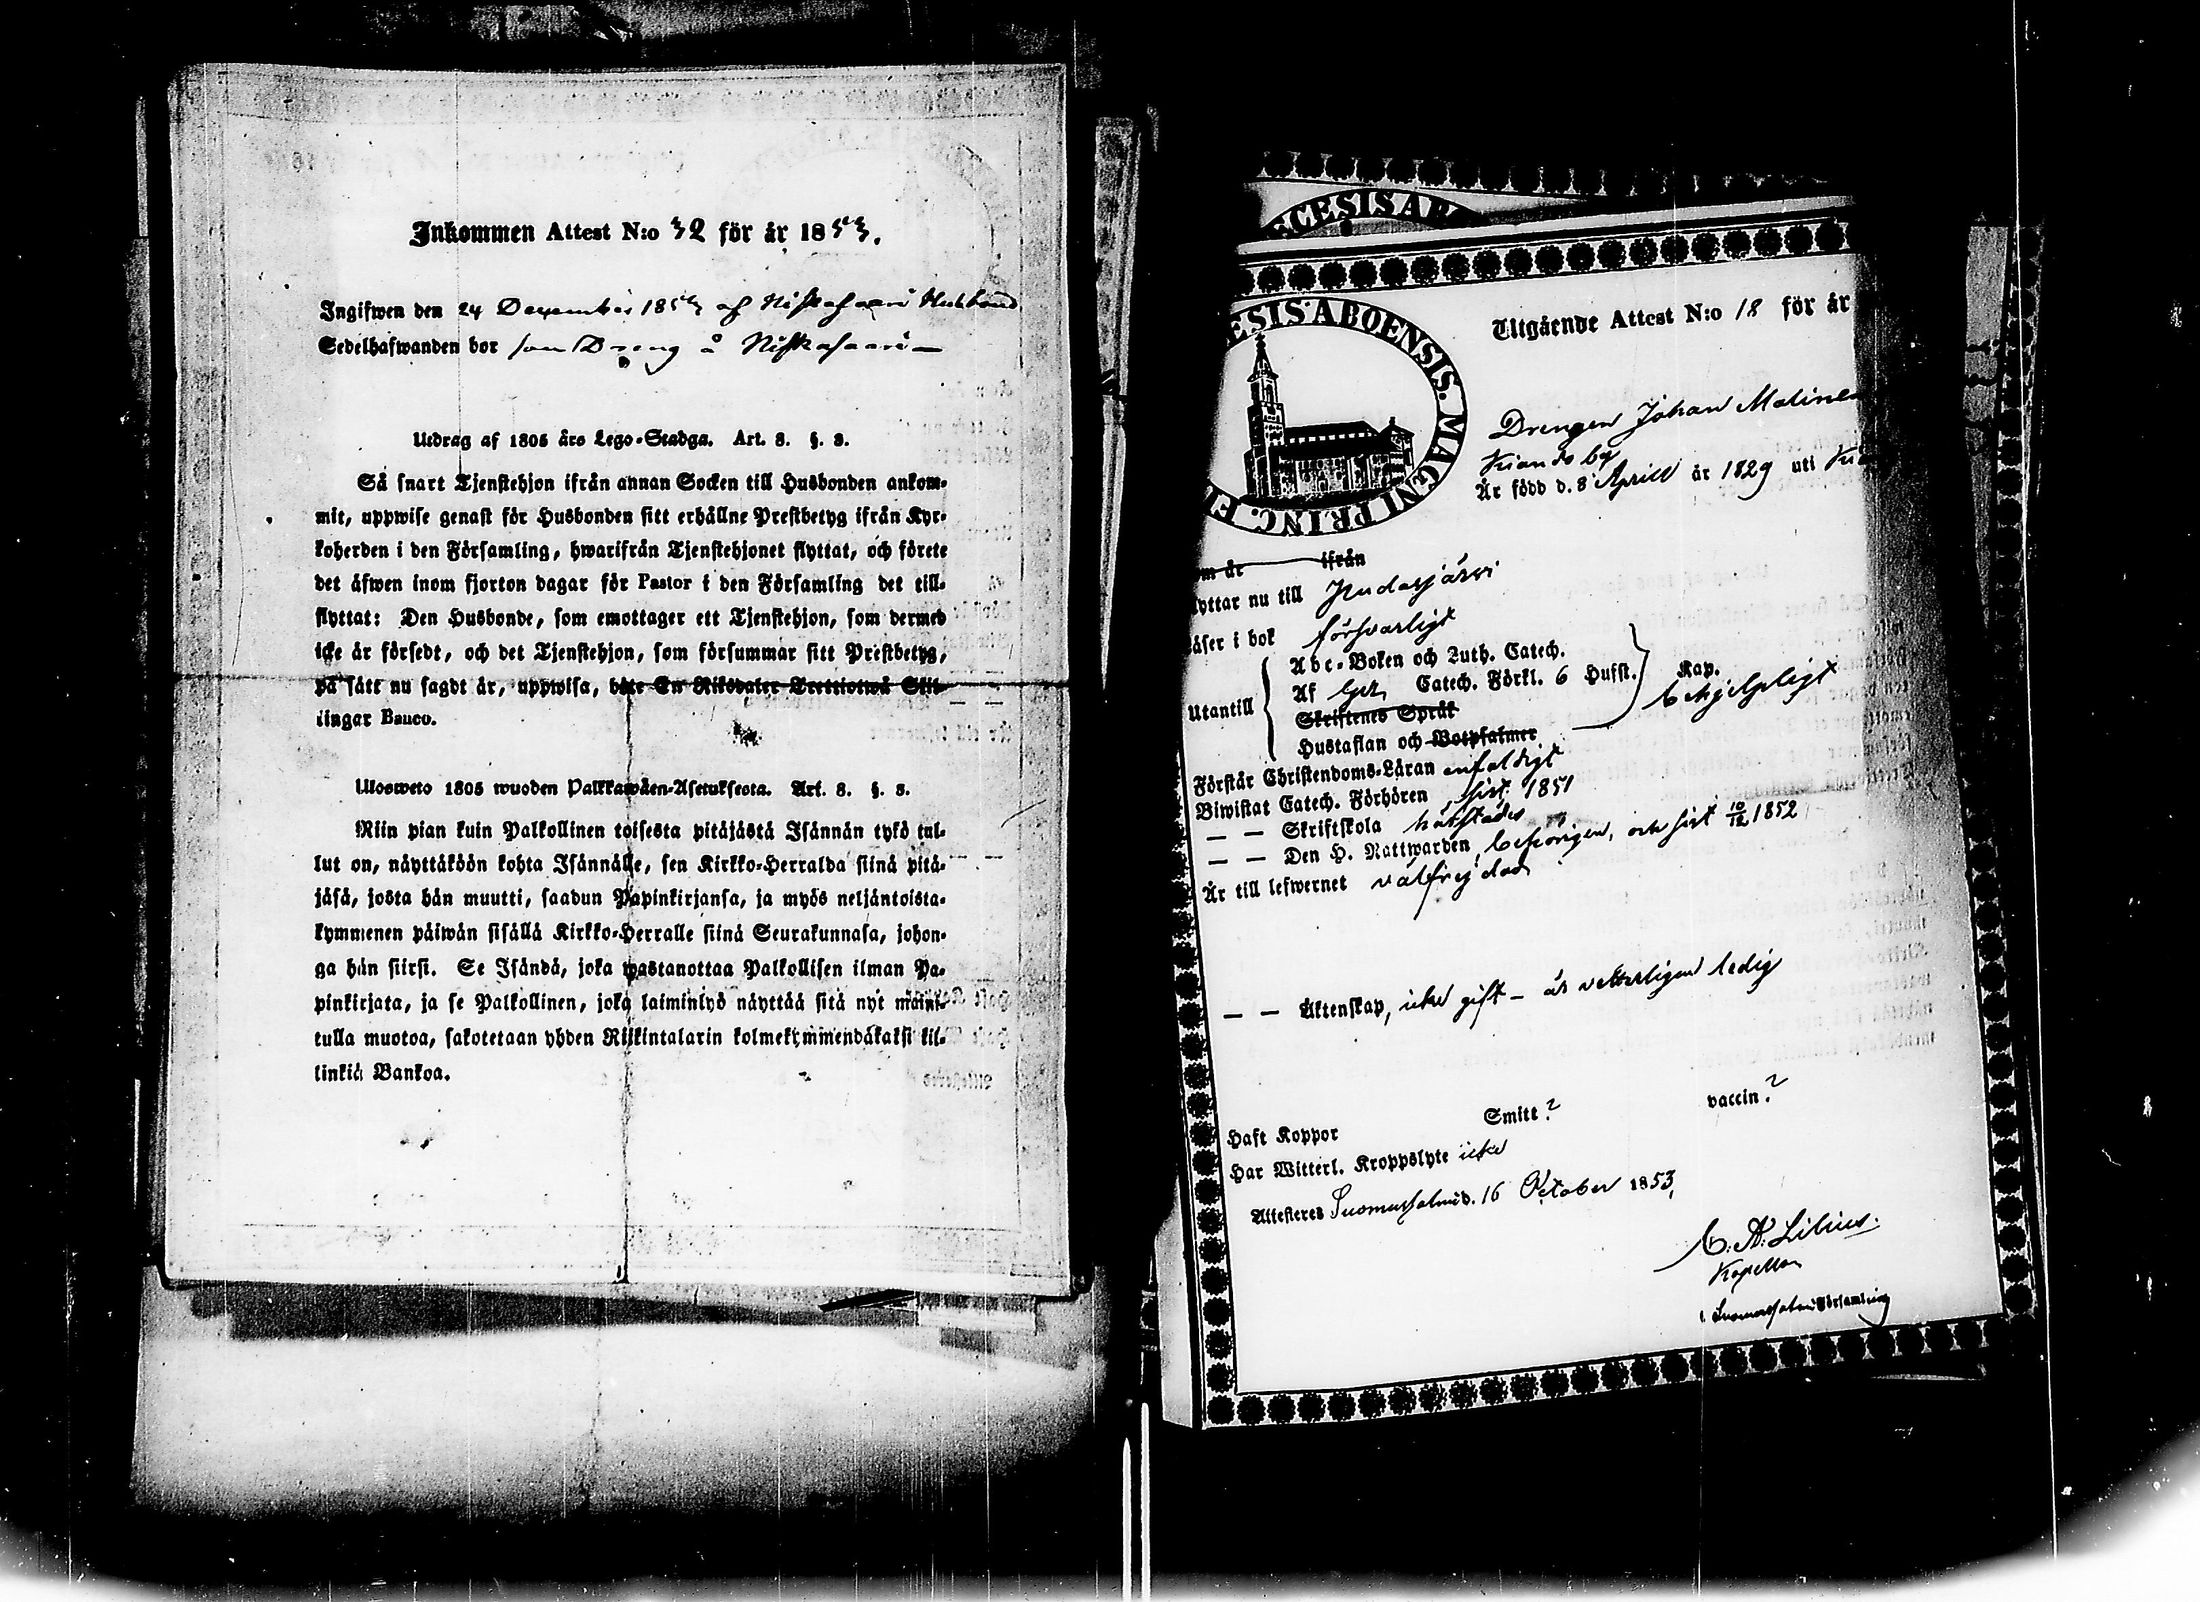 Inkommen Attest N:o 32 för år 1853.
Ingifwen den 24 December 1853 af Niskasaari Husbond
Sedelhafwanden bor som Dreng å Niskasaari
Utdrag af 1805 års Lego-Stadga. Art. 8. §. 8.
Så snart Tjenstehjon ifrån annan Socken till Husbonden ankom-
mit, uppwise genast för Husbonden sitt erhållne Prestbetyg ifrån Kyr-
koherden i den Församling, hwarifrån Tjenstehjonet flyttat, och förete
det äfwen inom fjorton dagar för Pastor i den Församling det till-
flyttat: Den Husbonde, som emottager ett Tjenstehjon, som dermed
icke är försedt, och det Tjenstehjon, som försummar sitt Prestbetyg,
på sätt nu sagdt är, uppwisa, böte En Riksdaler Trettiotwå Skil-
lingar Banco.
Ulosweto 1805 wuoden Palkkawäen-Asetuksesta. Art. 8. §. 8.
Niin pian kuin Palkollinen toisesta pitäjästä Isännän tykö tul-
lut on, näyttäköön kohta Isännälle, sen Kirkko-Herralda siinä pitä-
jäsä, josta hän muutti, saadun Papinkirjansa, ja myös neljäntoista-
kymmenen päiwän sisällä Kirkko-Herralle siinä Seurakunnasa, johon-
ga hän siirsi. Se Isändä, joka wastanottaa Palkollisen ilman Pa-
pinkirjata, ja se Palkollinen, joka laiminlyö näyttää sitä nyt maini-
tulla muotoa, sakotetaan yhden Riikintalarin kolmekymmendäkaksi kil-
linkiä Bankoa.
ECESIS AB
ESIS ABOENSIS. MAGNI PRINC. F
Utgående Attest N:o 18 för år
Drengen Johan Matines
Kiando by
Är född d. 8 Aprill år 1829 uti Kia
om år ifrån
lyttar nu till Pudasjärvi
äser i bok försvarligt
Utantill
Abc-Boken och Luth. Catech.
Af Catech. Förkl. 6 Hufst. Kap.
Skriftenes Språk
Hustaflan och Botpsalmer
behjelpligt
Förstår Christendoms-Läran enfaldigt
Biwistat Catech. Förhören sist 1851
— — Skriftskola härstädes
— — Den H. Nattwarden behörigen, och sist 10/12 1852
Är till lefwernet välfrejdad
— — Äktenskap, icke gift - är vetterligen ledig
Haft Koppor Smitt? vaccin?
Har Witterl. Kroppslyte icke
Attesteres Suomussalmi d. 16 October 1853,
C. A. Lilius.
Kapellan
i Suomussalmi Församling